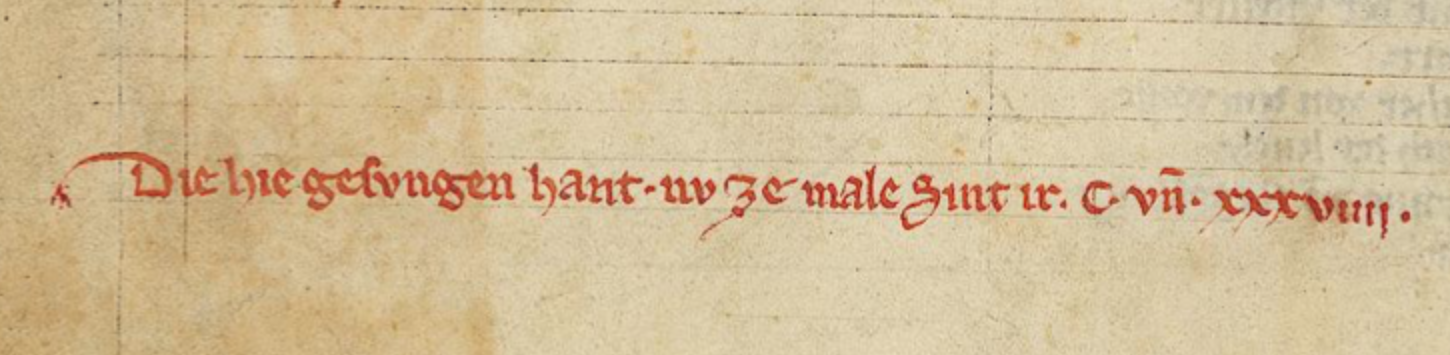 Die hie gesvngen hant · nv ze male Sint ir . C · vn̄ · xxxviiij ·